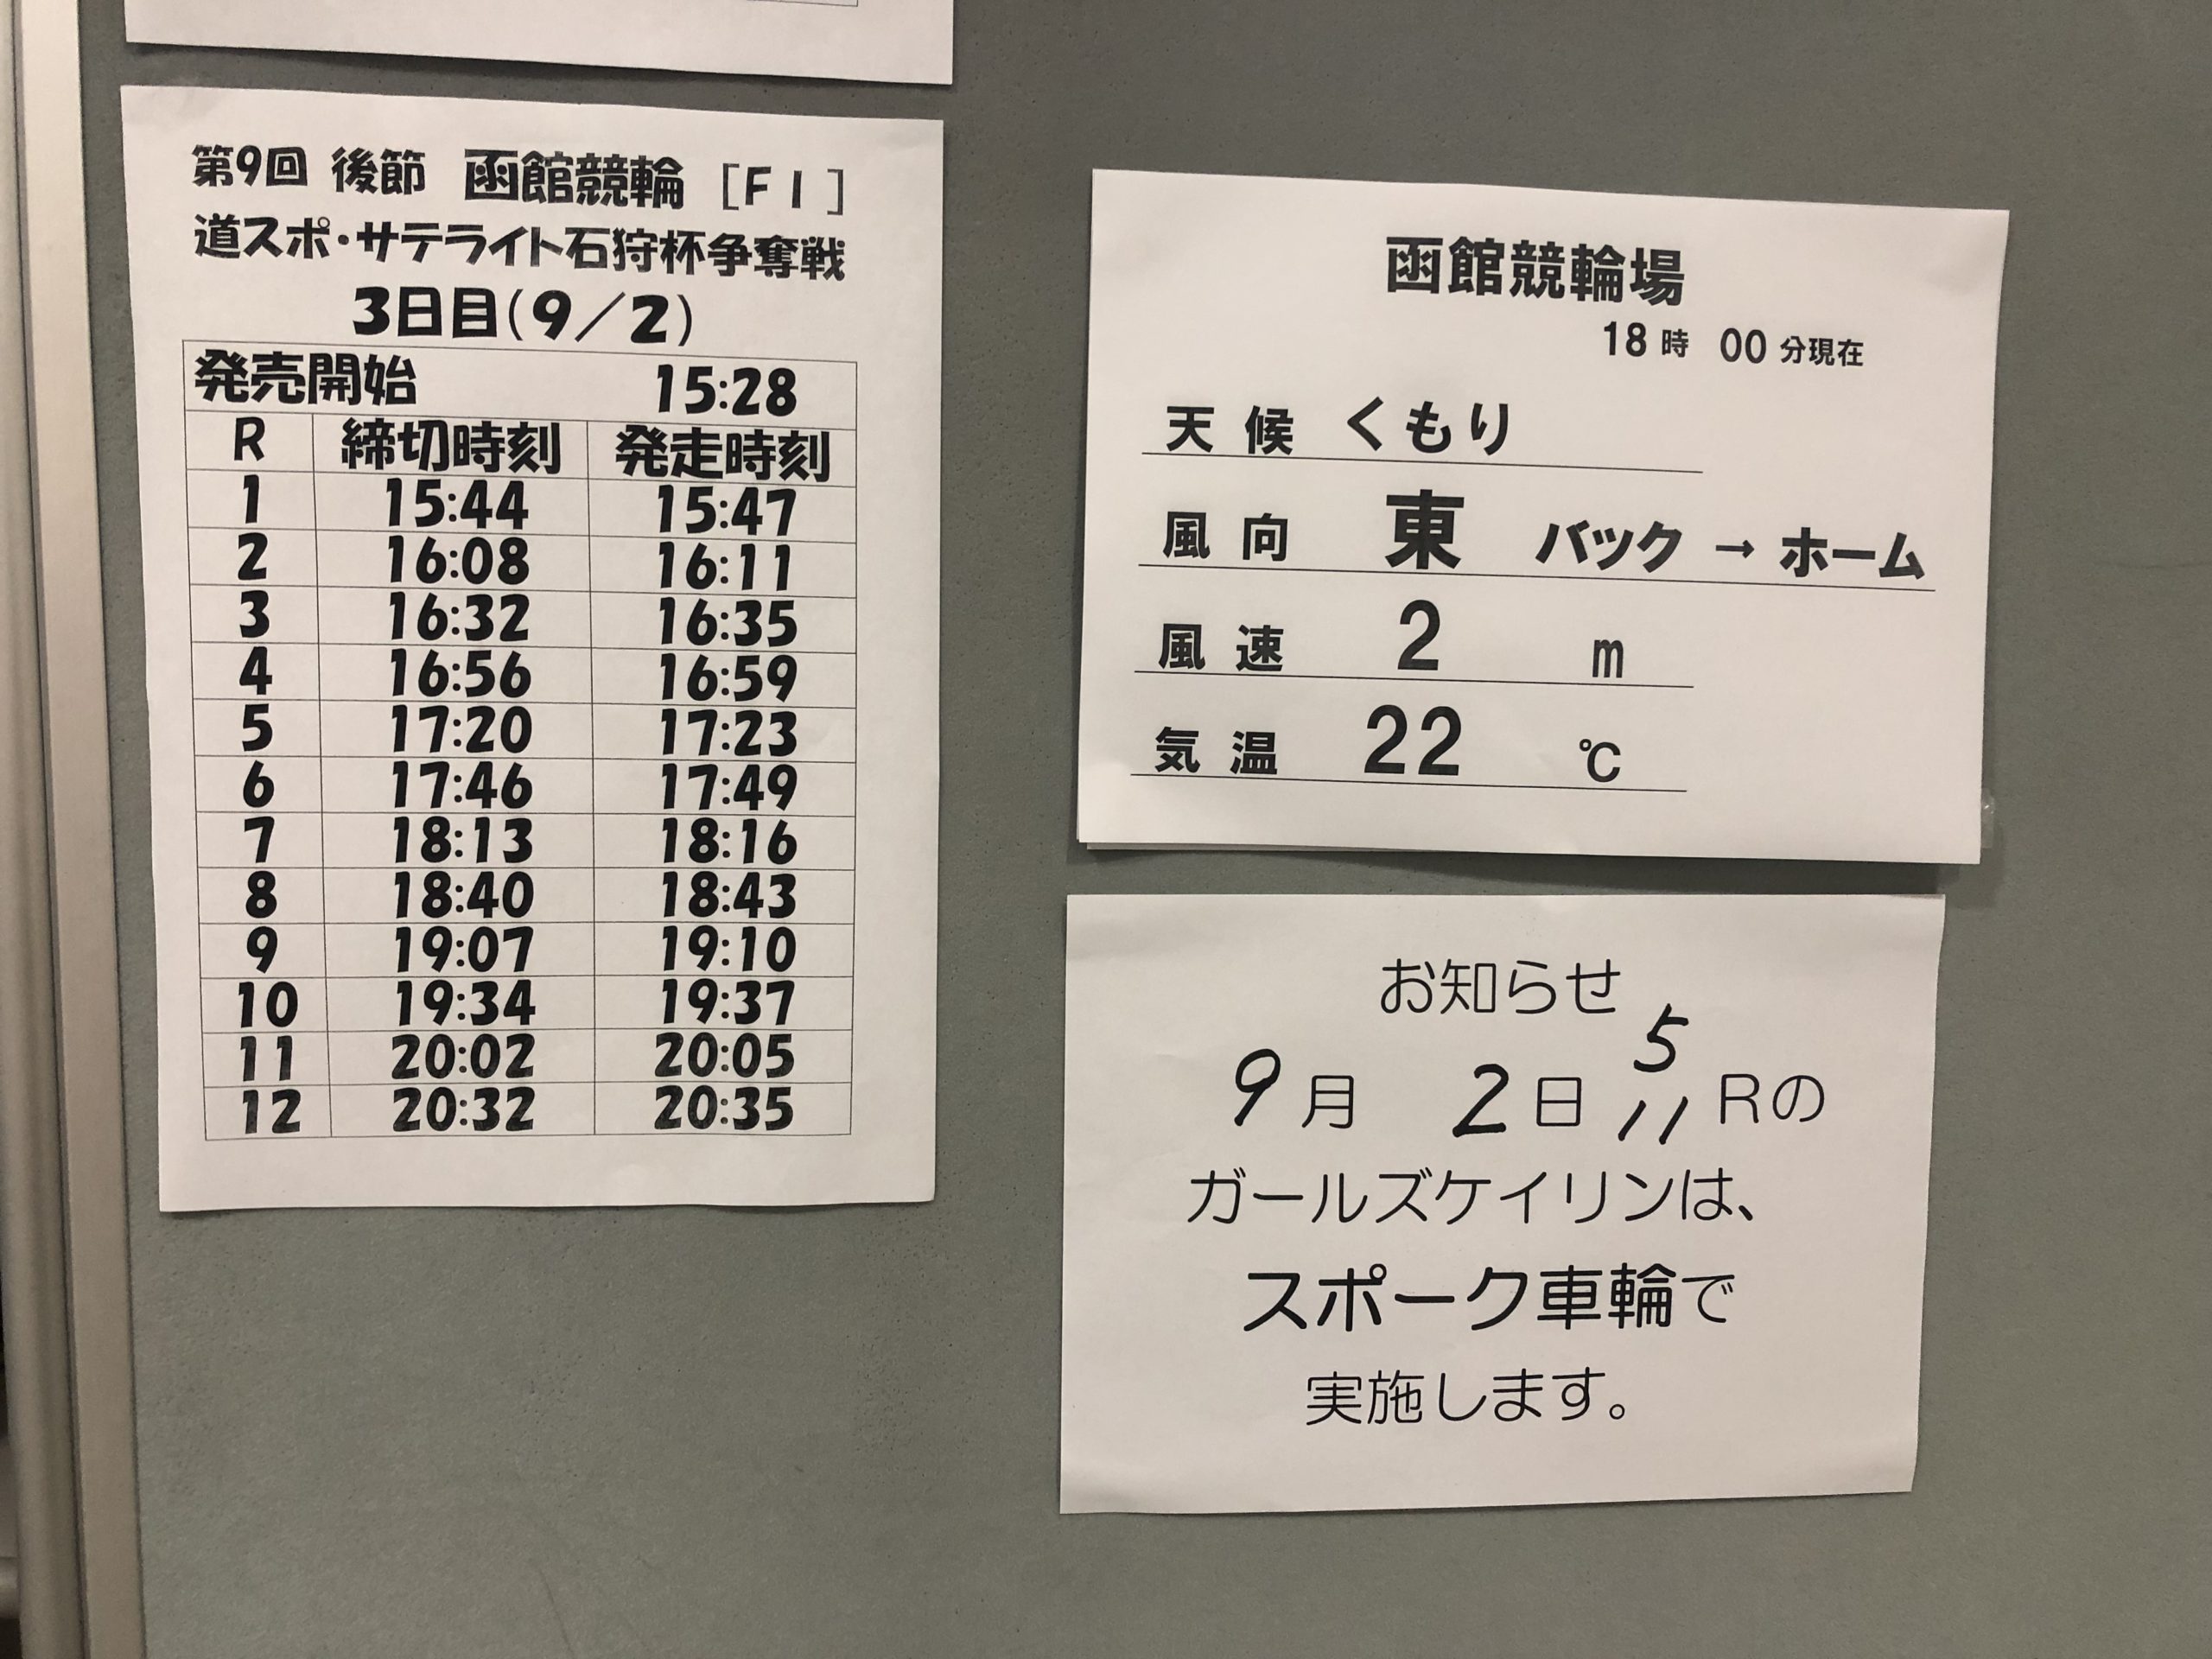 第9回 後節 函館競輪 [FⅠ]
道スポ・サテライト石狩杯争奪戦
3日目(9/2)
発売開始 15:28
R 締切時刻 発走時刻
1 15:44 15:47
2 16:08 16:11
3 16:32 16:35
4 16:56 16:59
5 17:20 17:23
6 17:46 17:49
7 18:13 18:16
8 18:40 18:43
9 19:07 19:10
10 19:34 19:37
11 20:02 20:05
12 20:32 20:35
函館競輪場
18 時 00 分現在
天 候 くもり
風 向 東 バック → ホーム
風 速 2 m
気 温 22 ℃
お知らせ
5
9 月 2 日 11 Rの
ガールズケイリンは、
スポーク車輪で
実施します。